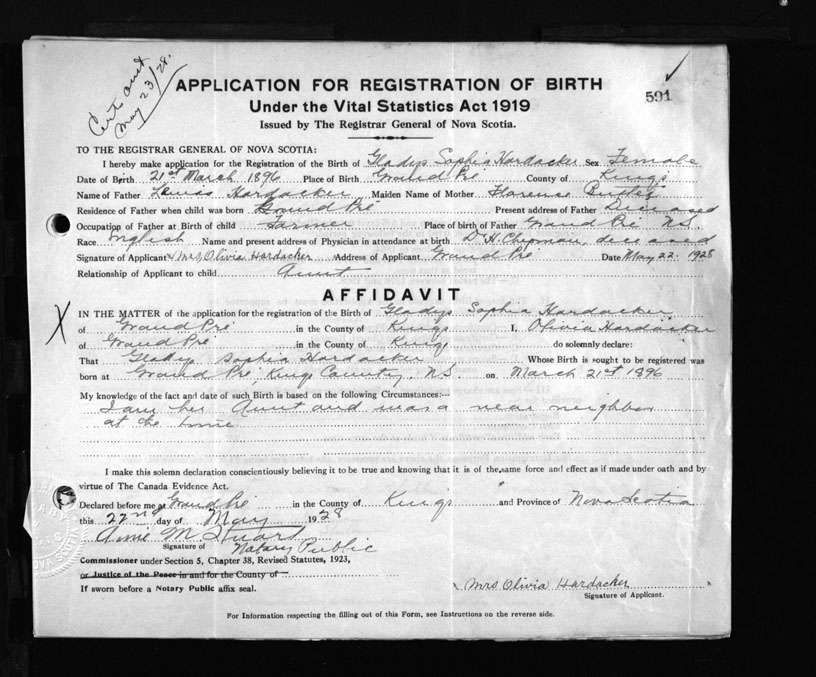 Cert
May 23/28.
591
APPLICATION FOR REGISTRATION OF BIRTH
Under the Vital Statistics Act 1919
Issued by The Registrar General of Nova Scotia.
TO THE REGISTRAR GENERAL OF NOVA SCOTIA:
I hereby make application for the Registration of the Birth of Gladys Sophia Hardacker Sex Female
Date of Birth 21st March 1896 Place of Birth Grand Pré County of Kings
Name of Father Lewis Hardacker Maiden Name of Mother Florence
Residence of Father when child was born Grand Pré Present address of Father Diceased
Occupation of Father at Birth of child Farmer Place of birth of Father Grand Pré N.S.
Race English Name and present address of Physician in attendance at birth Dr H. Chipman, deceased
Signature of Applicant Mrs Olivia Hardacker Address of Applicant Grand Pré Date May 22. 1928
Relationship of Applicant to child Aunt
AFFIDAVIT
X
IN THE MATTER of the application for the registration of the Birth of Gladys Sophia Hardacker
of Grand Pré in the County of Kings I, Olivia Hardacker
of Grand Pré in the County of Kings do solemnly declare:
That Gladys Sophia Hardacker Whose Birth is sought to be registered was
born at Grand Pré, Kings County, N.S. on March 21st 1896
My knowledge of the fact and date of such Birth is based on the following Circumstances:—
I am her Aunt and was a near neighbor
at the time
I make this solemn declaration conscientiously believing it to be true and knowing that it is of the same force and effect as if made under oath and by
virtue of The Canada Evidence Act.
Declared before me at Grand Pré in the County of Kings and Province of Nova Scotia
this 22nd day of May 1928
Annie M. Stuart
Signature of Notary Public
Commissioner under Section 5, Chapter 38, Revised Statutes, 1923,
or Justice of the Peace in and for the County of
If sworn before a Notary Public affix seal.
Mrs Olivia Hardacker
Signature of Applicant.
For Information respecting the filling out of this Form, see Instructions on the reverse side.